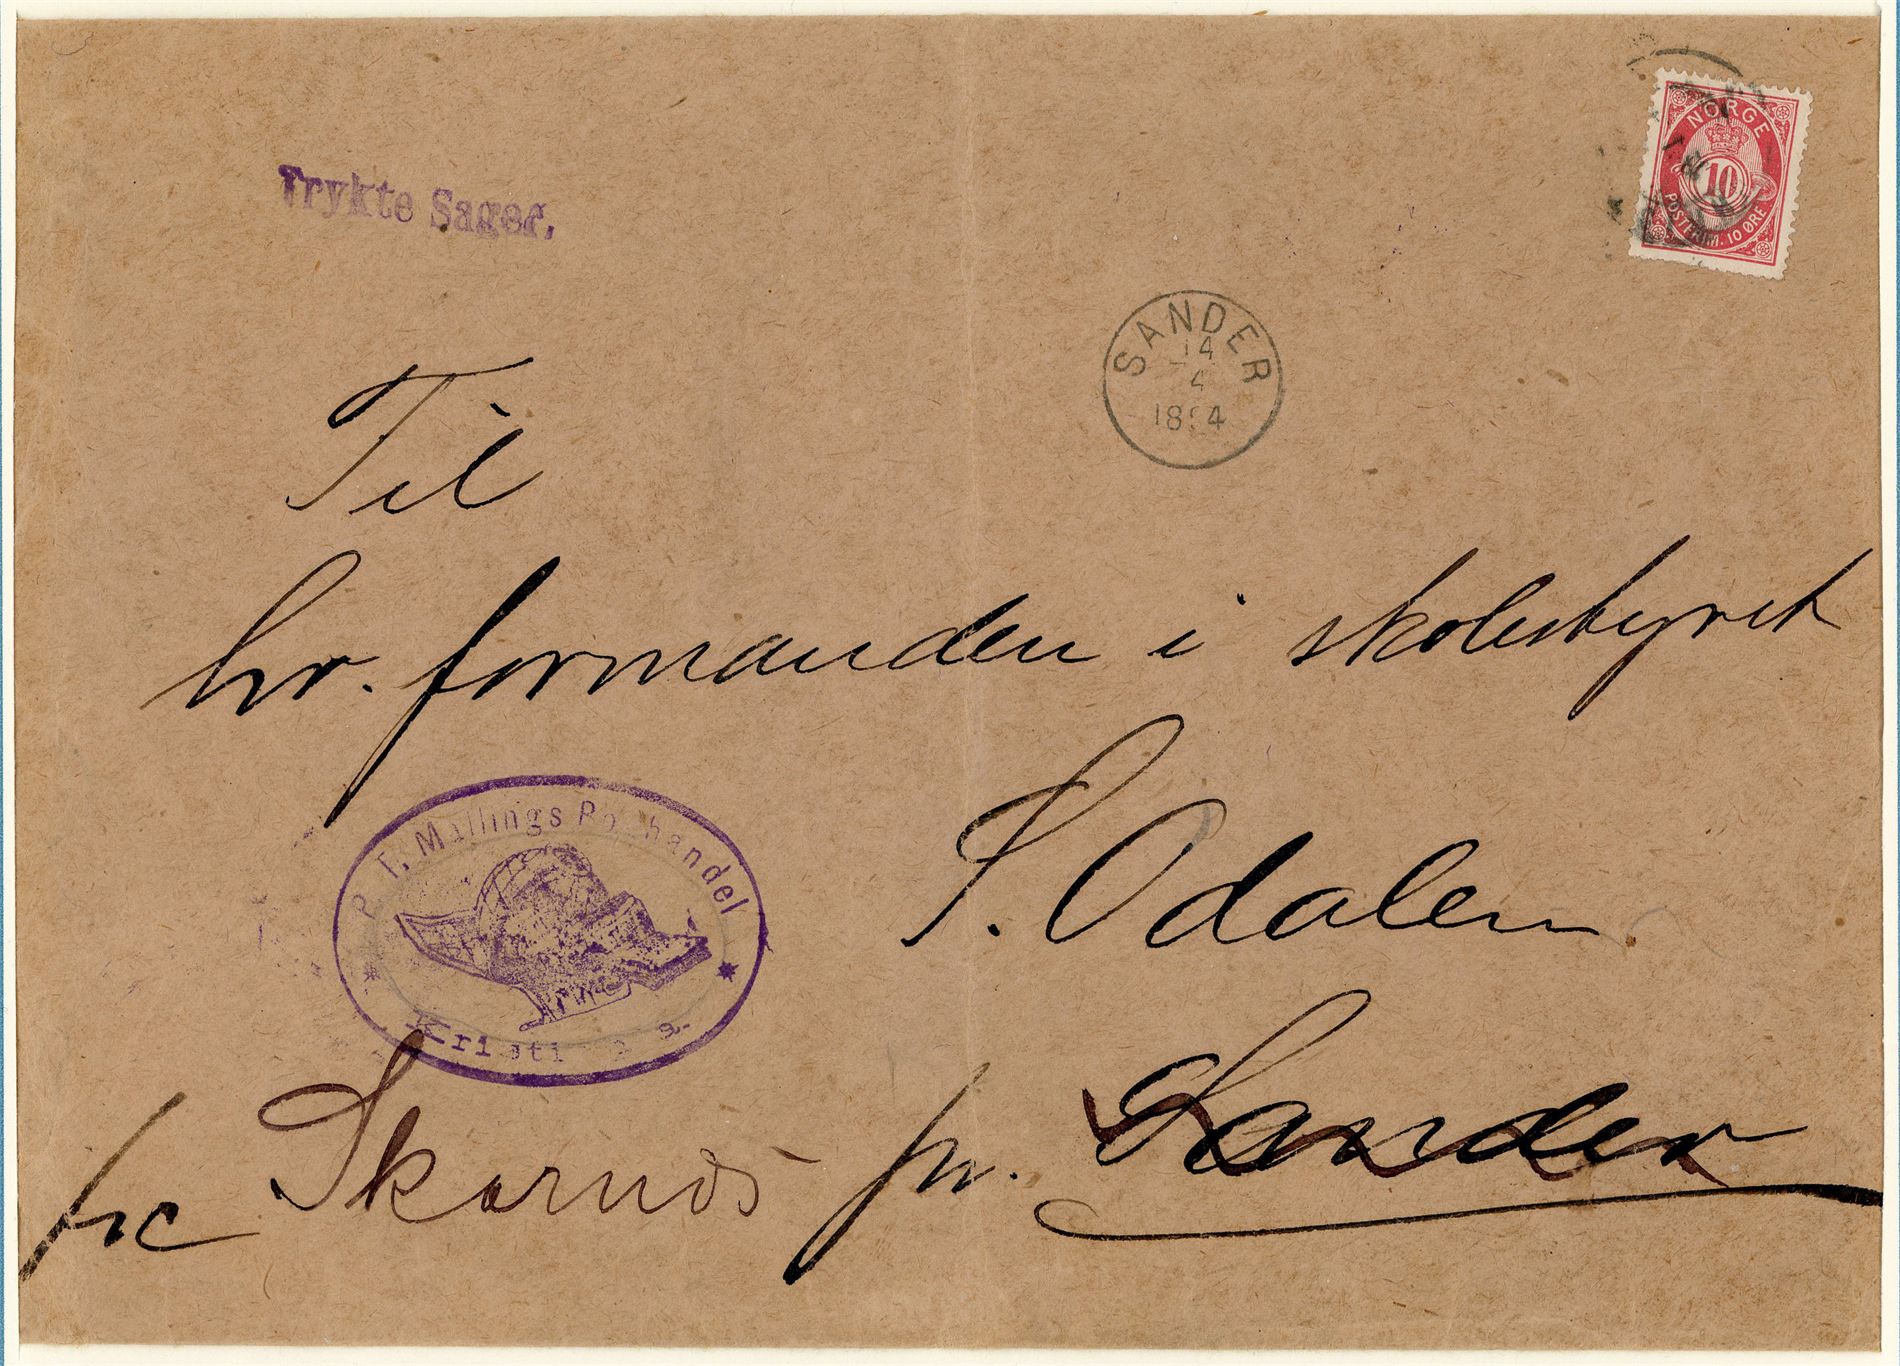 Trykte Sager.
NORGE
10
POSTFRIM. 10 ØRE
SANDER
14
4
1894
Til
hr. formanden i skolestyret
S. Odalen
P. T. Mallings Boghandel
Kristiania
Skarnæs pr. Sander